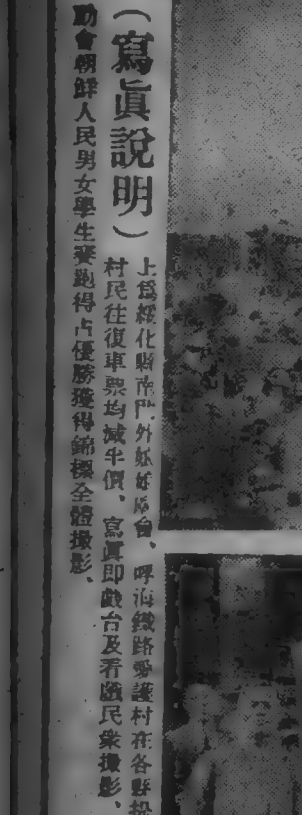 （寫眞說明）
上爲綏化縣南門外娘娘庙會、呼海鐵路愛護村在各縣
村民往復車票均减半價、寫眞即戯台及看戯民衆撮影、
動會朝鮮人民男女學生賽跑得占優勝獲得錦標全體撮影、